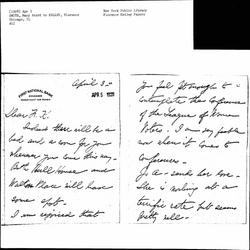 [1928] Apr 3
SMITH, Mary Rozet to KELLEY, Florence
Chicago, Il
ALS
New York Public Library
Florence Kelley Papers
April 3rd
FIRST NATIONAL BANK
CHICAGO
APR 5
Dear F. K.
Indeed there will be a
bed and a room for you
whenever you come this way.
Both Hull House and
Walton Place will have
some spot.
I am surprised that
You feel strong to
contemplate the Conference
of the League of Women
Voters! I am very feeble
now when it comes to
Conferences.
J. A. sends her love.
She is going at a
terrific rate but seems
pretty well.